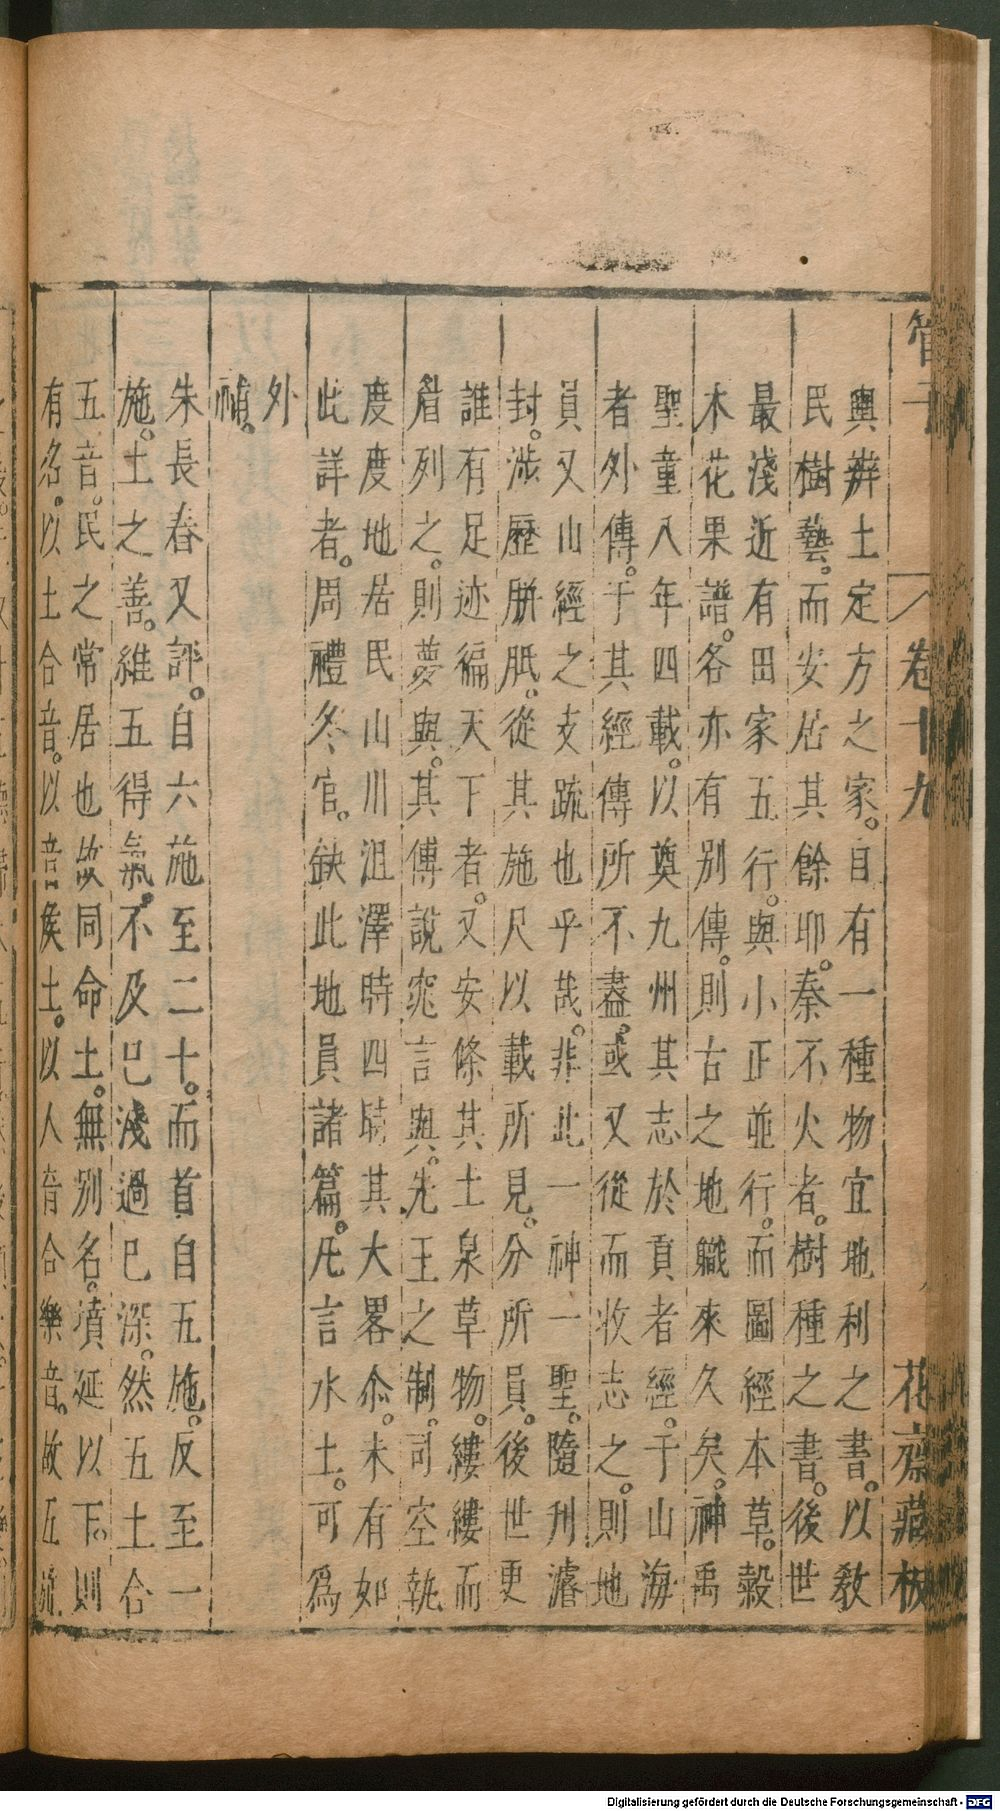 管子 卷十九 花齋藏板
輿辨土定方之家。自有一種物宜地利之書。以敎
民樹藝。而安居其餘耶。秦不火者。樹種之書。後世
最淺近有田家五行。與小正並行。而圖經本草。穀
木花果譜。各亦有別傳。則古之地職來久矣。神禹
聖童八年四載。以奠九州其志於貢者經。于山海
者外傳。于其經傳所不盡。或又從而收志之。則地
員又山經之支疏也乎哉。非此一神一聖。隨刋濬
封。涉歷胼胝。從其施尺以載所見。分所員。後世更
誰有足迹徧天下者。又安條其土泉草物。縷縷而
眉列之。則夢與。其傳說寃言與。先王之制。司空執
度度地居民山川沮澤時四時其大畧尒。未有如
此詳者。周禮冬官。缺此地員諸篇。凡言水土。可爲
外
補。
朱長春又評。自六施至二十。而首自五施。反至一
施。土之善。維五得氣。不及巳淺過巳深。然五土合
五音。民之常居也故同命土。無別名。墳延以下。則
有名。以土合音。以音候土。以人音合樂音。故五施
Digitalisierung gefördert durch die Deutsche Forschungsgemeinschaft - DFG